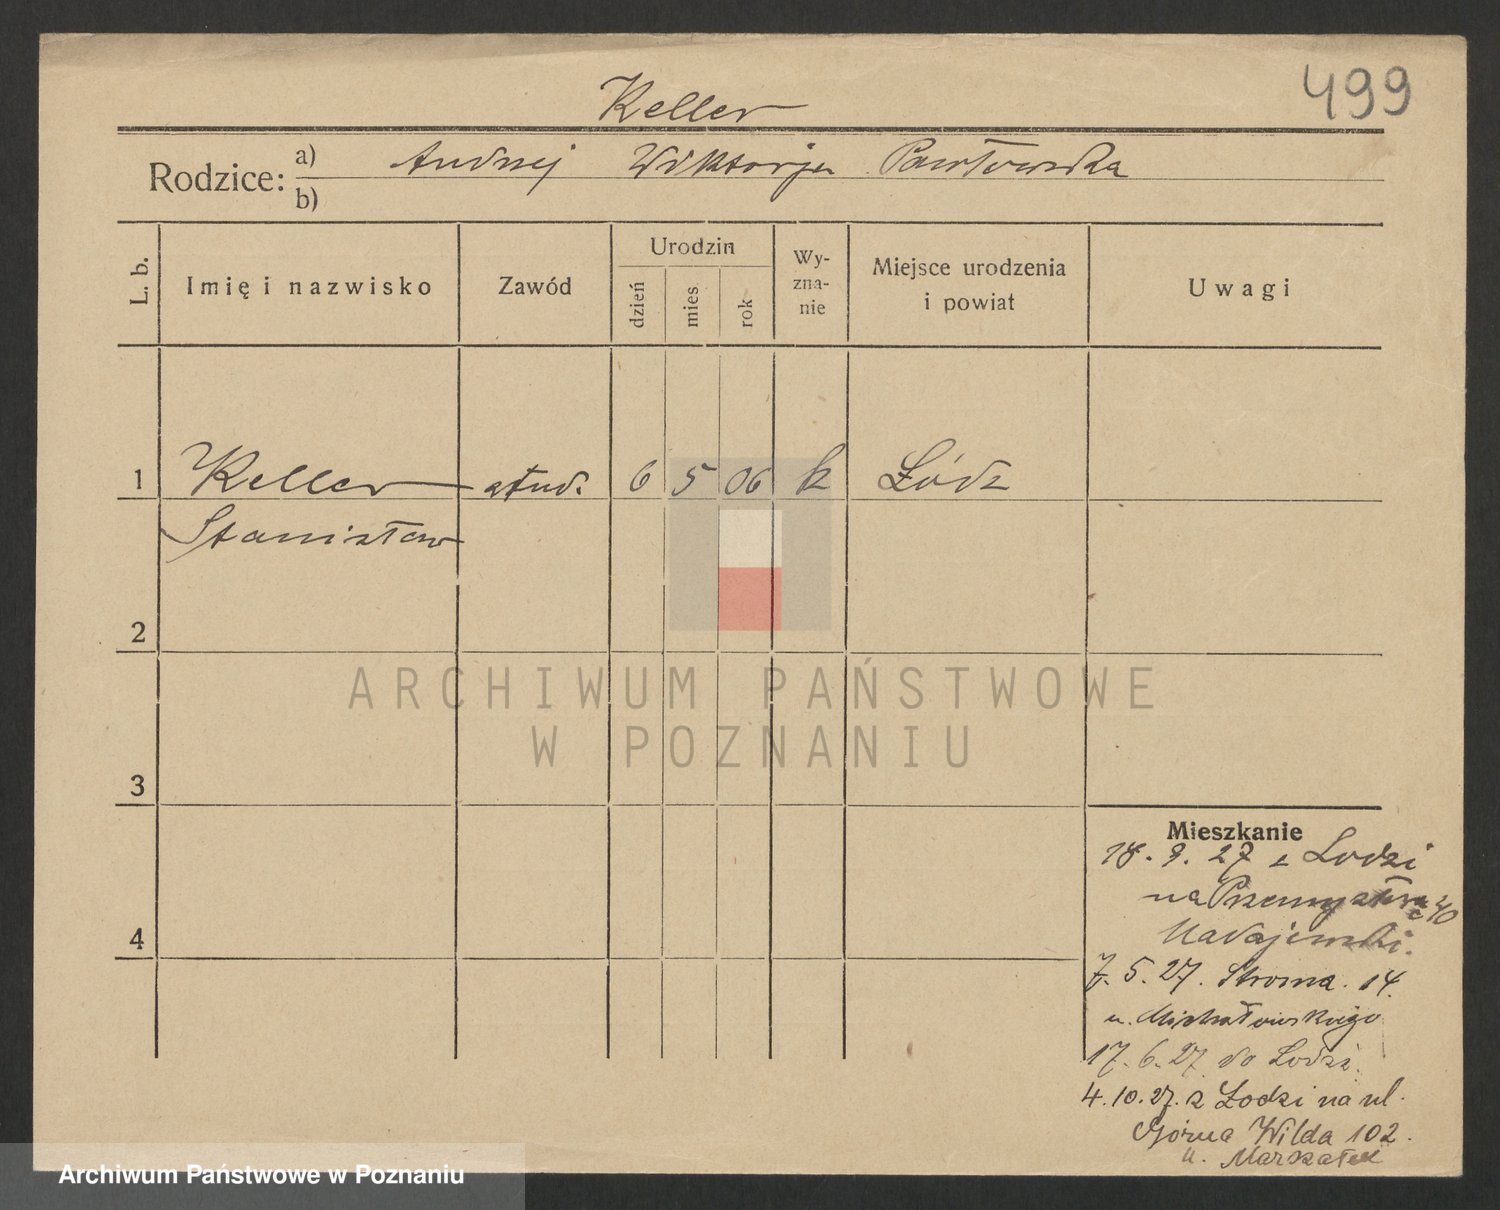 499
Keller
Rodzice: a) Andrzej Wiktorja Pawłowska
b)
L. b.
Imię i nazwisko
Zawód
Urodzin
dzień
mies
rok
Wy-
zna-
nie
Miejsce urodzenia
i powiat
Uwagi
1 Keller stud. 6 5 06 k Łódz
Stanisław
2
3
4
Mieszkanie
18. 2. 27 z Lodzi
na Przemysłowa 40
7. 5. 27. Stroma. 14.
u. Michałowskiego
17. 6. 27 do Lodzi.
4. 10. 27. z Łodzi na ul.
Górna Wilda 102.
u. Marszałek
ARCHIWUM PAŃSTWOWE
W POZNANIU
Archiwum Państwowe w Poznaniu